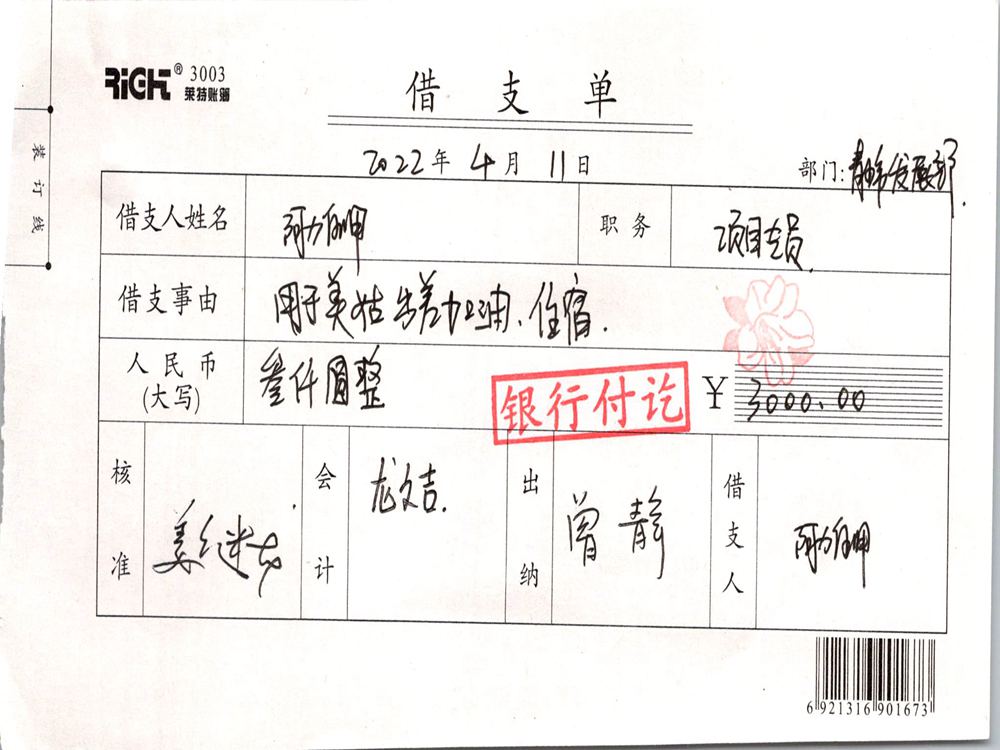 RiGHT® 3003
莱特账簿
借支单
2022年 4月 11日
部门: 发展部
装订线
借支人姓名 阿力
职务 项目专员
借支事由 用于美姑出差加油、住宿.
人民币
(大写) 叁仟圆整
银行付讫
¥ 3000.00
核准
会计 龙文吉.
出纳 曾静
借支人 阿力
6 921316 901673